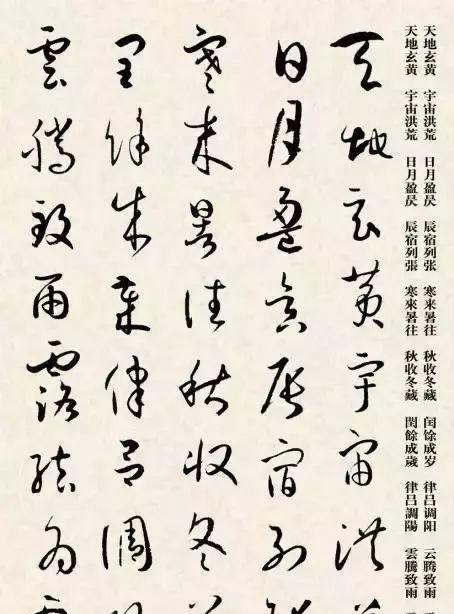 天地玄黄 宇宙洪荒 日月盈昃 辰宿列张 寒来暑往 秋收冬藏 闰馀成岁 律吕调阳 云腾致雨
天地玄黄 宇宙洪荒 日月盈昃 辰宿列張 寒來暑往 秋收冬藏 閏餘成歲 律吕調陽 雲騰致雨
天地玄黄宇宙洪
日月盈昃辰宿列
寒來暑往秋收冬
閏餘成歲律吕調
雲騰致雨露結為